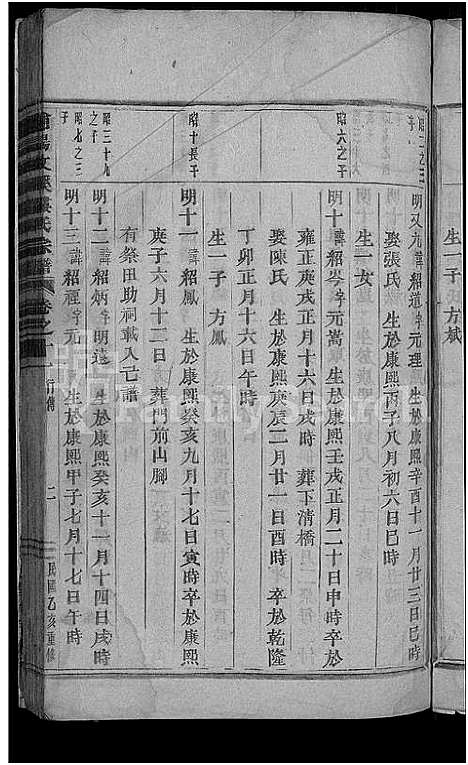 生一子 方斌
昭二之三子
明又九 諱紹道字元理 生於康熙辛酉十一月廿三日巳時
娶張氏 生於康熙丙子八月初六日巳時
生一女
昭六之子
明十 諱紹岑字元嵩 生於康熙壬戌正月二十日申時卒於
雍正庚戌正月十六日戌時 葬下清橋
娶陳氏 生於康熙庚辰二月廿一日酉時 卒於乾隆
丁卯正月十六日午時
生一子 方鳳
昭十長子
明十一 諱紹鳳 生於康熙癸亥九月十七日寅時卒於康熙
庚子六月十二日 葬門前山腳
有祭田助祠載入己譜
昭三十九之子
明十二 諱紹炳字明遠 生於康熙癸亥十一月十四日戌時
昭七之三子
明十三 諱紹程字元 生於康熙甲子七月十七日午時
氏宗譜 卷之十一 行傳 二 民國乙亥重修